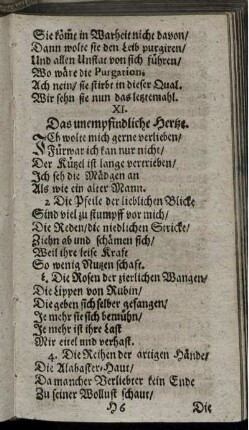 Sie köm̃t in Warheit nicht davon/
Dann wolte sie den Leib purgiren/
Und allen Unflat von sich führen/
Wo wäre die Purgation;
Ach nein/ sie stirbt in dieser Qual.
Wir sehn sie nun das letztemahl.
XI.
Das unempfindliche Hertze.
ICh wolte mich gerne verlieben/
Fürwar ich kan nur nicht/
Der Kützel ist lange vertrieben/
Ich seh die Mädgen an
Als wie ein alter Mann.
2 Die Pfeile der lieblichen Blicke
Sind viel zu stumpff vor mich/
Die Reden/ die niedlichen Stricke/
Ziehn ab und schämen sich/
Weil ihre leise Kraft
So wenig Nutzen schaft.
3. Die Rosen der zierlichen Wangen/
Die Lippen von Rubin/
Die geben sich selber gefangen/
Je mehr sie sich bemühn/
Je mehr ist ihre Last
Mir eitel und verhast.
4. Die Reihen der artigen Hände/
Die Alabaster-Haut/
Da mancher Verliebter kein Ende
Zu seiner Wollust schaut/
H 6 Die